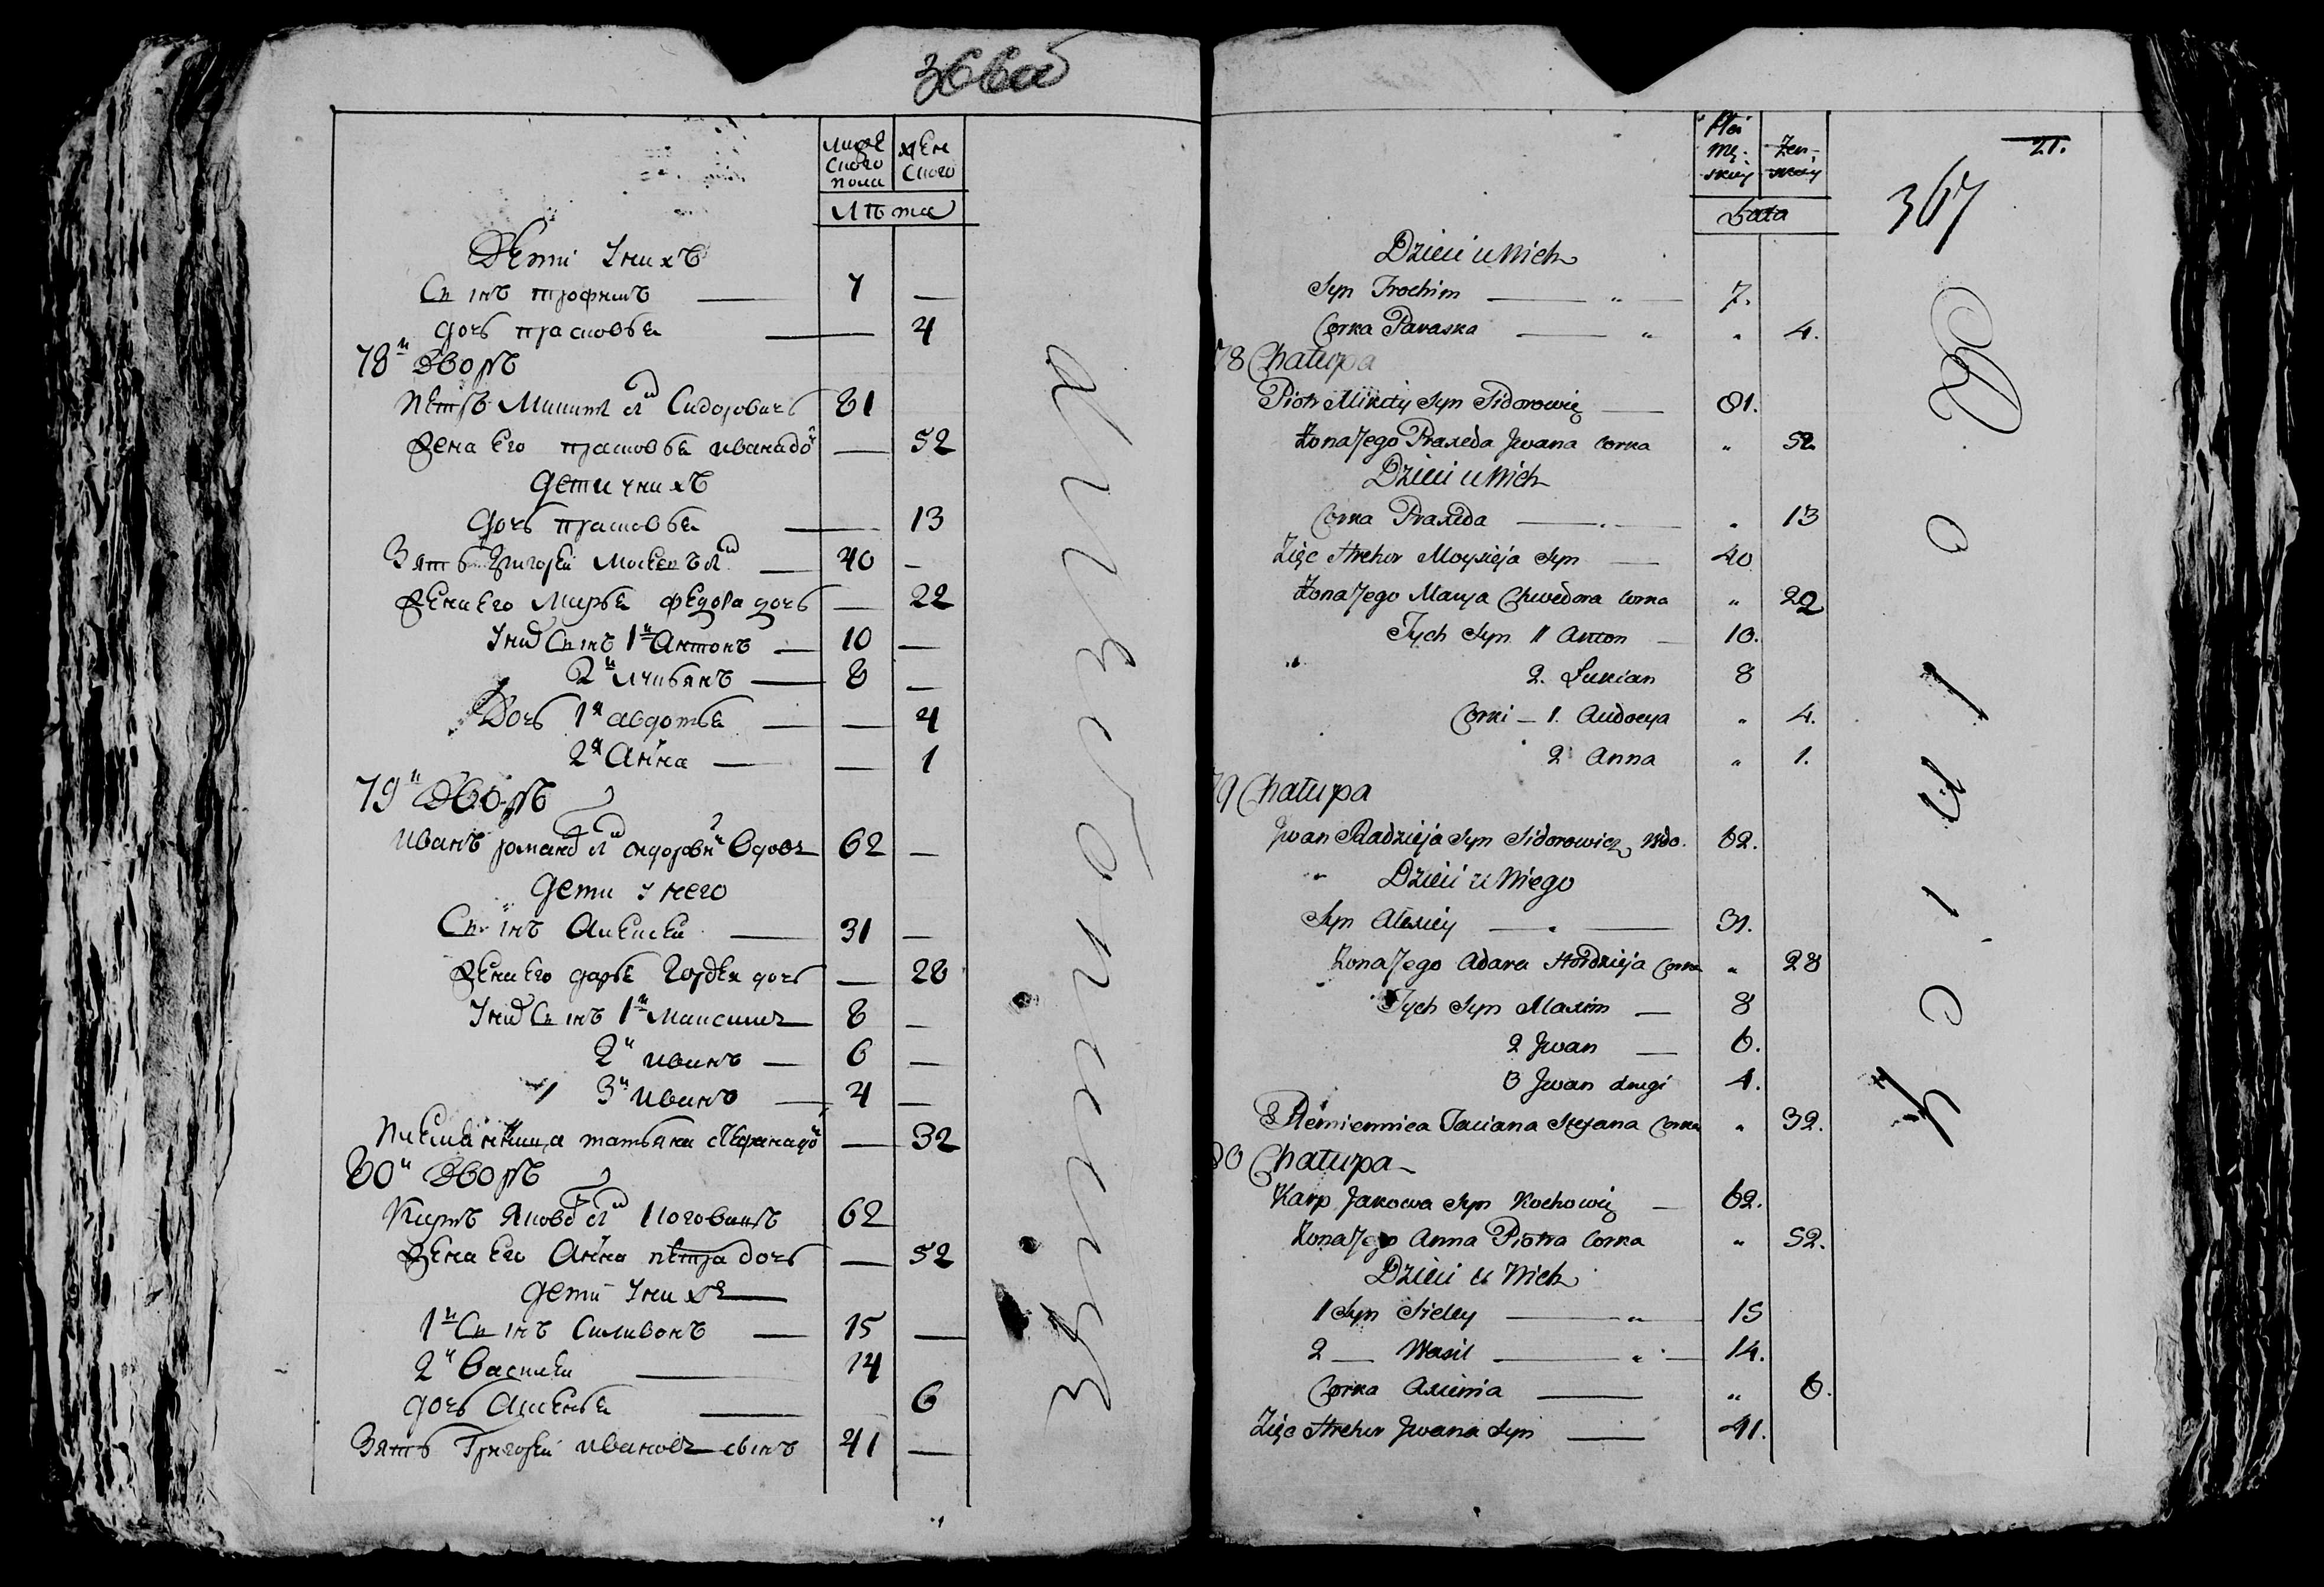 366об
мужескаго пола
женскаго
лѣта
Дети у нихъ
Сынъ трофимъ 7 —
дочь прасковья — 4
78й Дворъ
Петръ Микитъ сынъ Сидоровичъ 81
жена его прасковья ивана дочь — 52
дети у нихъ
дочь прасковья — 13
Зять Григорей 40 —
жена его Марья федора дочь — 22
у нихъ Сынъ 1й Антонъ 10 —
2й лукьянъ 8 —
Дочь 1я авдотья — 4
2я Анна — 1
79й Дворъ
иванъ сынъ Вдовъ 62 —
дети у него
Сынъ Алексей 31 —
жена его дарья Гордея дочь — 28
у нихъ Сынъ 1й Максимъ 8 —
2й иванъ 6 —
3й иванъ 4 —
племянница татьяна — 32
80й Дворъ
Карпъ Яковъ сынъ 62
жена его Анна петра дочь — 52
дети у нихъ
1й Сынъ Силивонъ 15 —
2й Василей 14
дочь Аксенья 6
Зять Григорей ивановъ сынъ 41 —
Płci męskiey
Żeńskiey
Lata
21.
367
Dzieci u Nich
Syn Trochim 7.
Corka Paraska " 4.
78 Chałupa
Piotr Mikity Syn Sidorowicz 81.
Żona Jego Praxeda Jwana Corka " 52
Dzieci u Nich
Corka Praxeda " 13
Zięc Hrehor Moysieja Syn 40
Żona Jego Marya Chwedora Corka " 22
Tych Syn 1 Anton 10.
2. Łukian 8
Corki 1. Audocya " 4.
2 Anna " 1.
79 Chałupa
Jwan Radzieja Syn Sidorowicz Wdo. 62.
Dzieci u Niego
Syn Alexiey 31.
Żona Jego Adara Hordzieja Corka " 28
Tych Syn Maxim 8
2 Jwan 6.
3 Jwan drugi 4.
Plemiennica Taciana Stefana Corka " 32.
80 Chałupa
Karp Jakowa Syn Kochowicz 62.
Żona Jego Anna Piotra Corka " 52.
Dzieci u Nich
1 Syn 15
2 — Wasil 14.
Corka Axienia " 6.
Zięc Hrehor Jwana Syn 41.